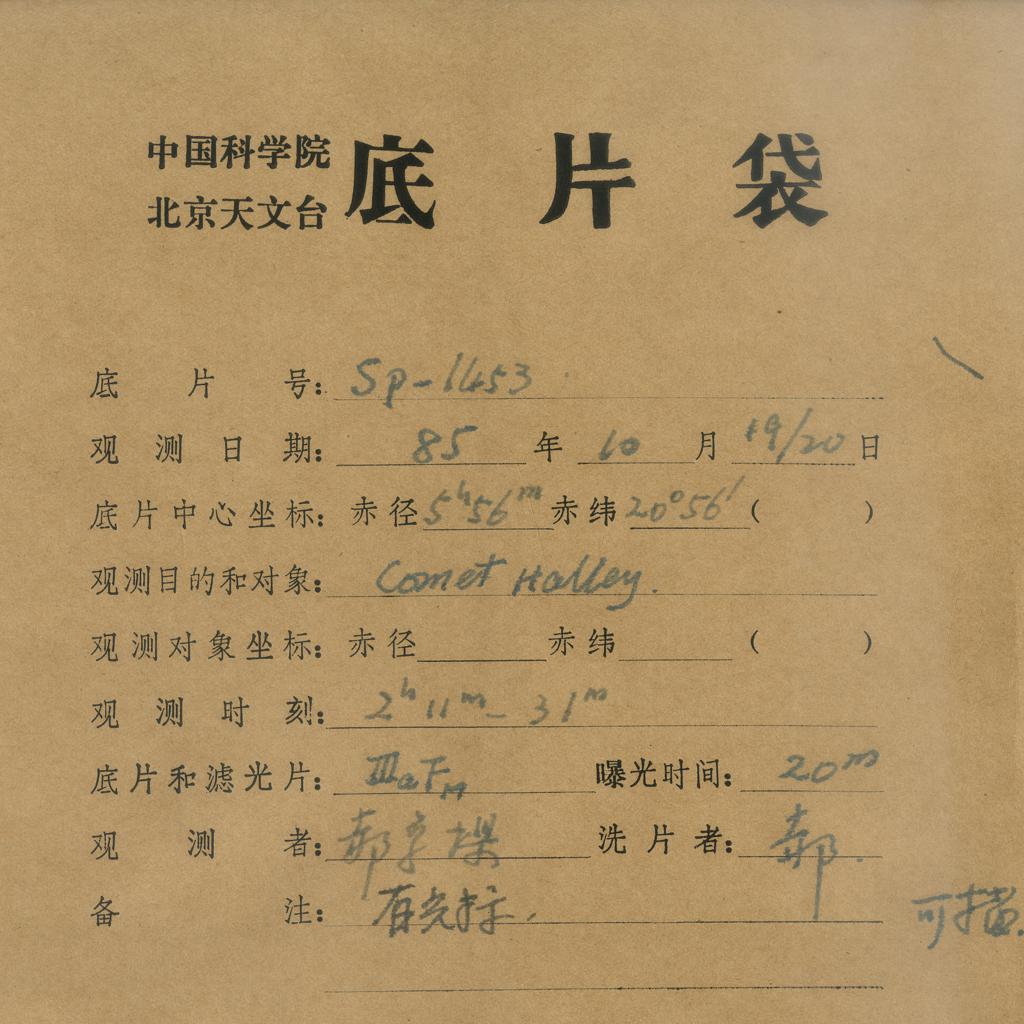 中国科学院
北京天文台
底片袋
底片号: Sp-1453
观测日期: 85年10月19/20日
底片中心坐标: 赤径5h56m赤纬20°56′( )
观测目的和对象: Comet Halley.
观测对象坐标: 赤径 赤纬 ( )
观测时刻: 2h11m-31m
底片和滤光片: IIIaF 曝光时间: 20m
观测者: 郝 洗片者: 郝.
备注: 有光标.
可描.